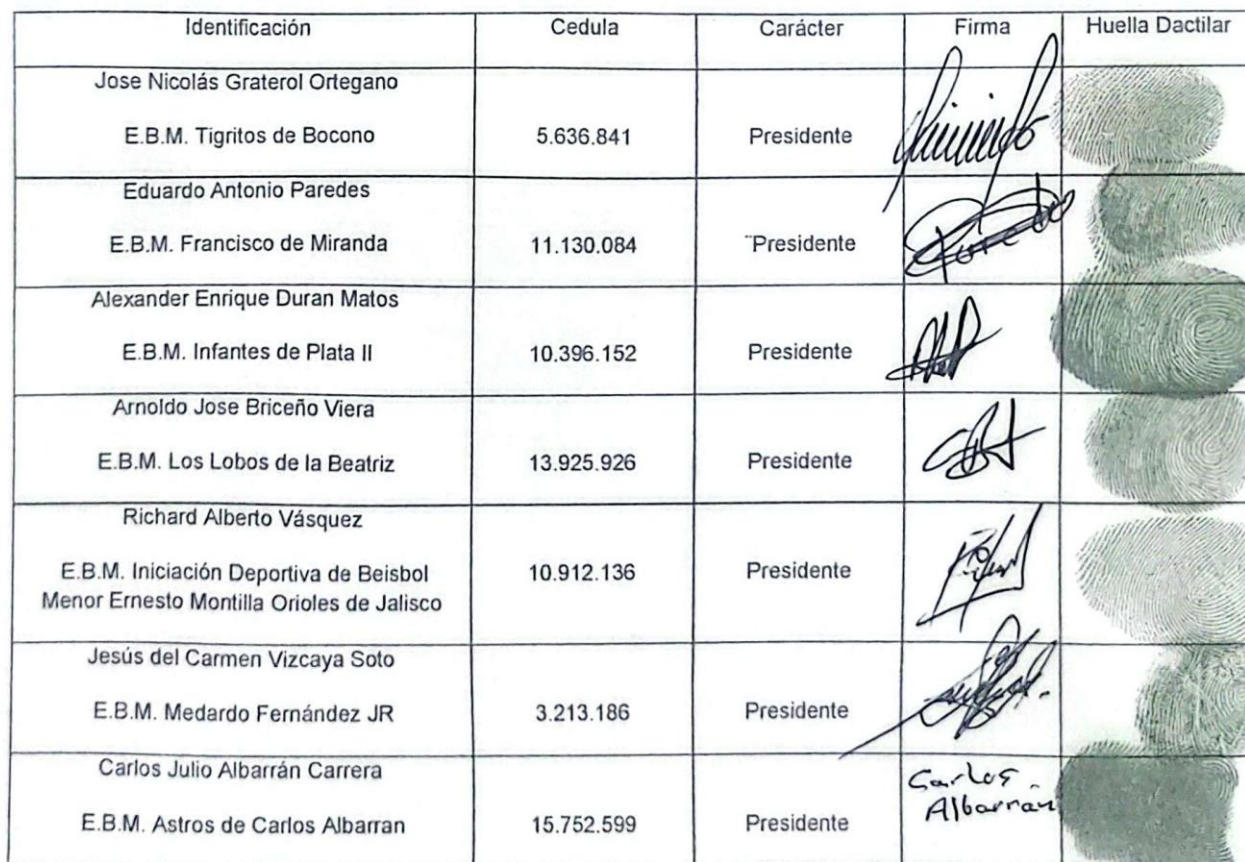 Identificación Cedula Carácter Firma Huella Dactilar
Jose Nicolás Graterol Ortegano
E.B.M. Tigritos de Bocono 5.636.841 Presidente
Eduardo Antonio Paredes
E.B.M. Francisco de Miranda 11.130.084 Presidente
Alexander Enrique Duran Matos
E.B.M. Infantes de Plata II 10.396.152 Presidente
Arnoldo Jose Briceño Viera
E.B.M. Los Lobos de la Beatriz 13.925.926 Presidente
Richard Alberto Vásquez
E.B.M. Iniciación Deportiva de Beisbol 10.912.136 Presidente
Menor Ernesto Montilla Orioles de Jalisco
Jesús del Carmen Vizcaya Soto
E.B.M. Medardo Fernández JR 3.213.186 Presidente
Carlos Julio Albarrán Carrera
Carlos
Albarrán
E.B.M. Astros de Carlos Albarran 15.752.599 Presidente